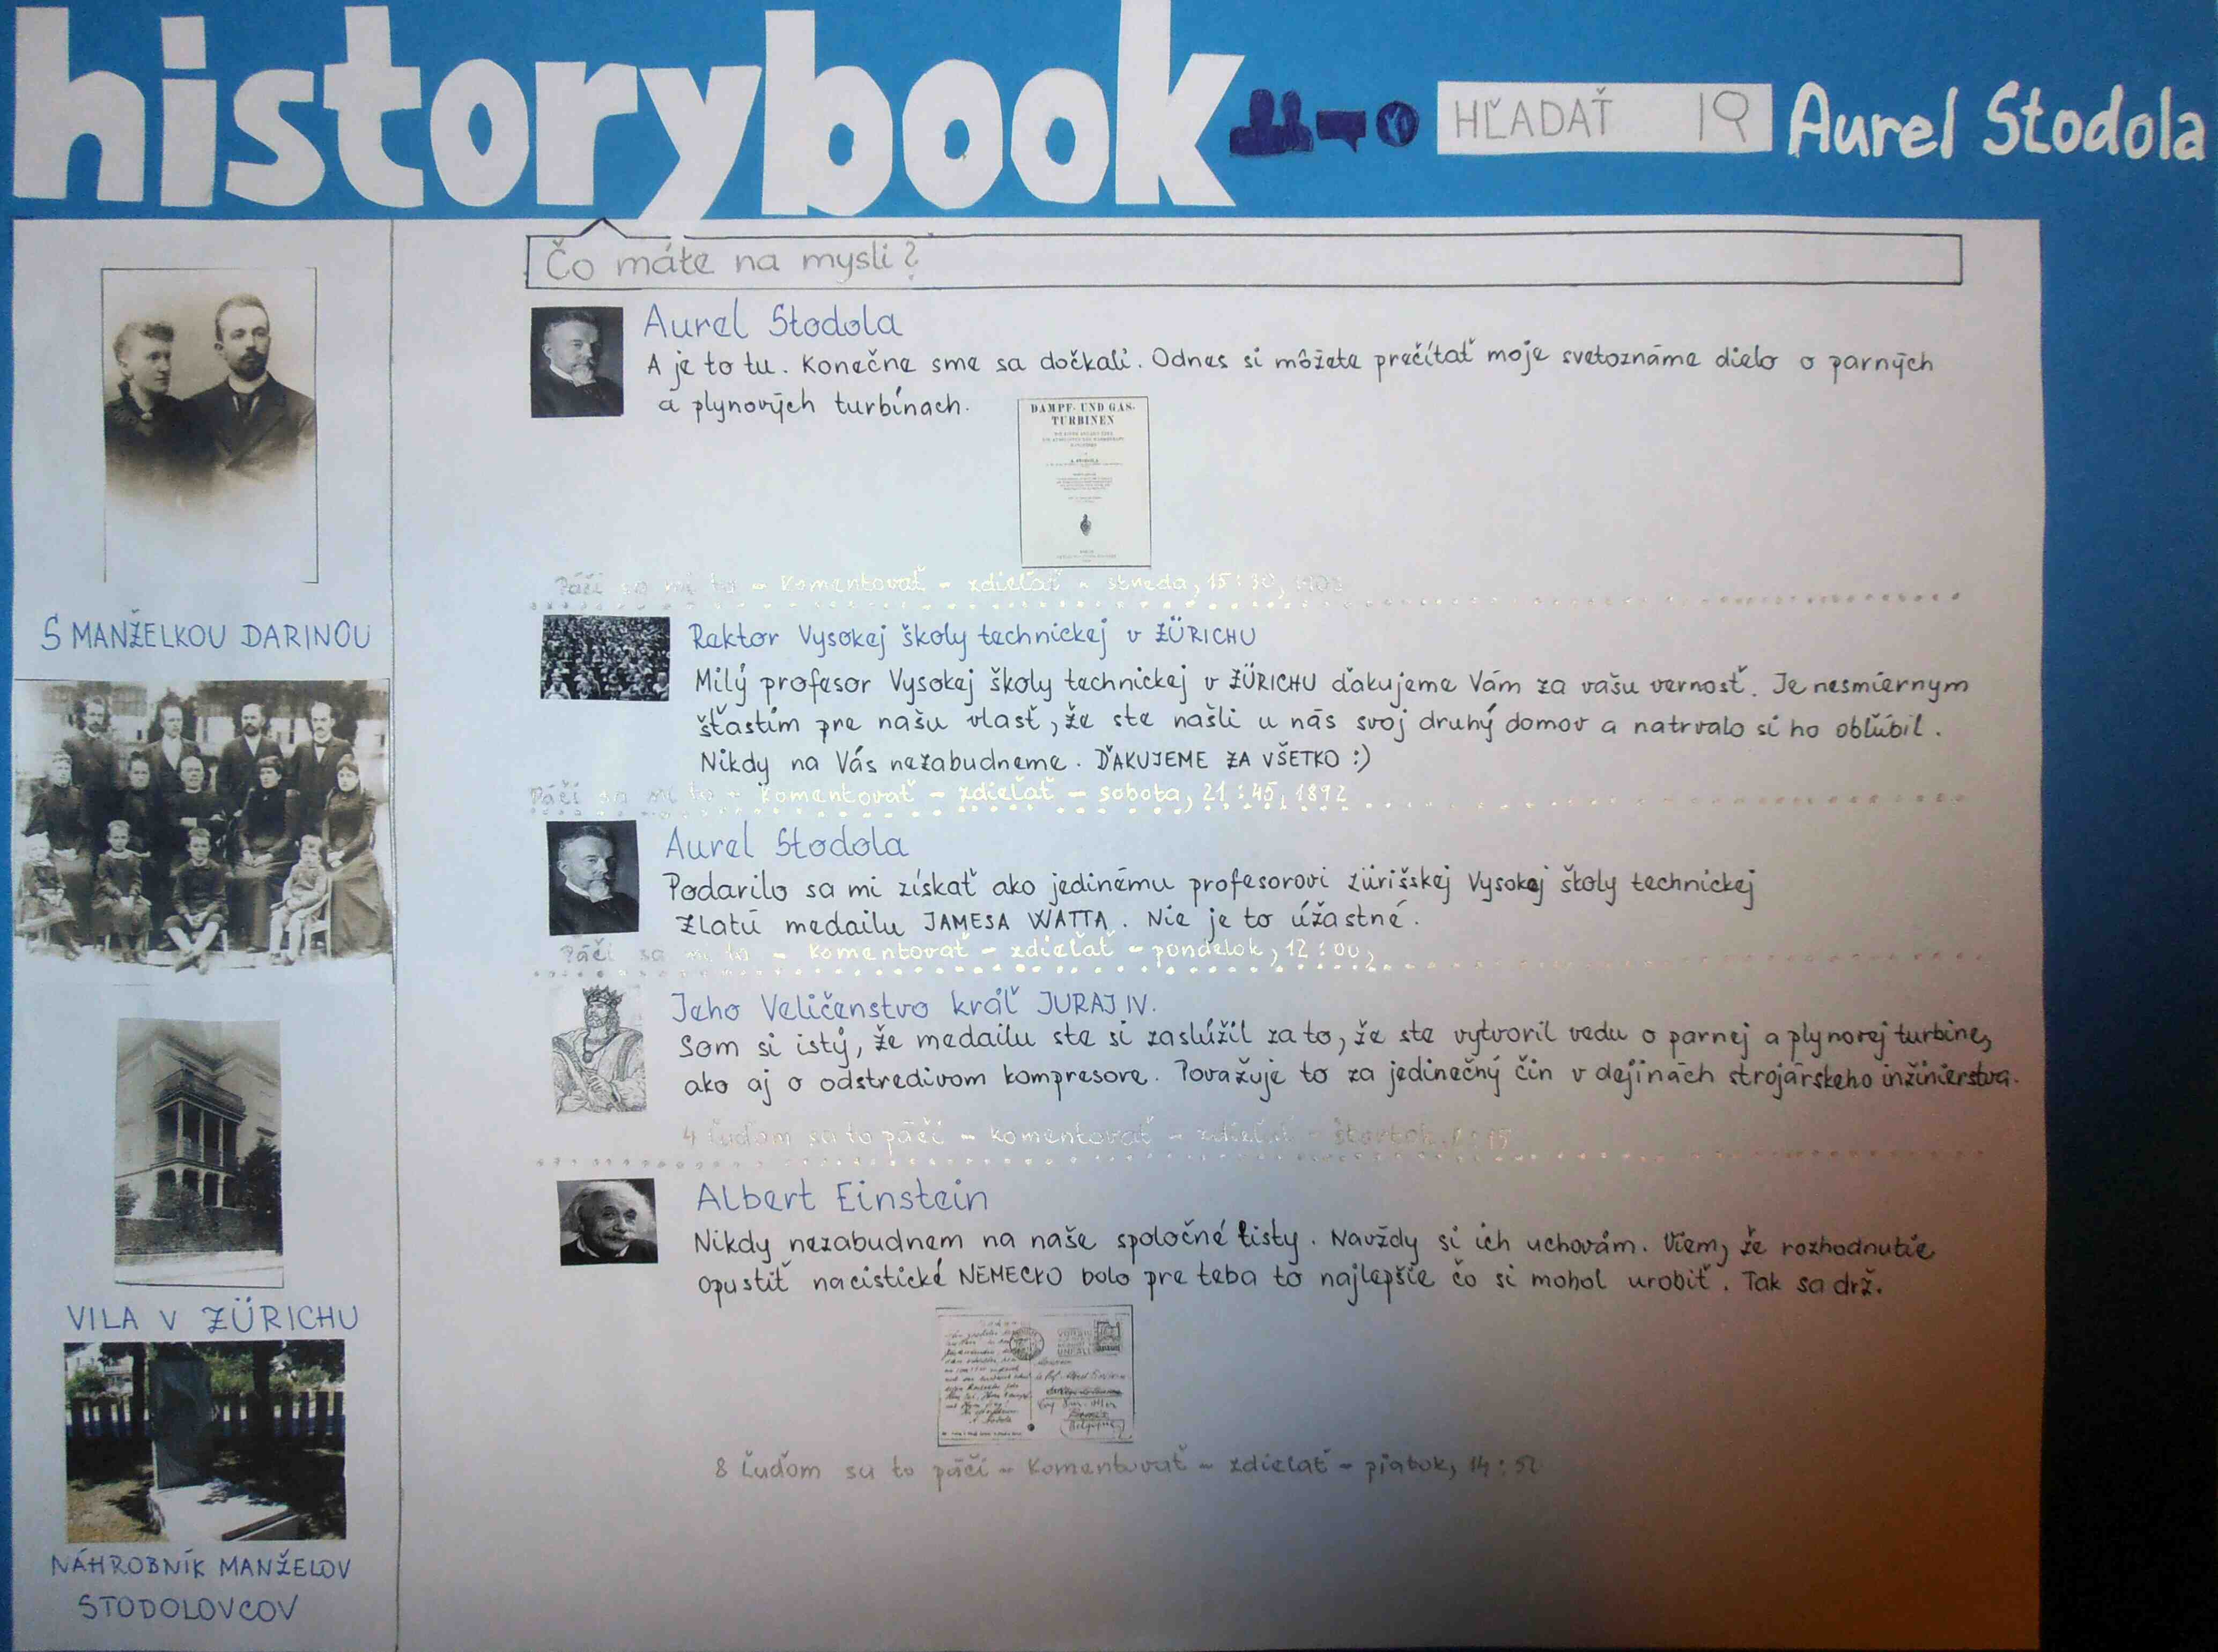 historybook
HĽADAŤ
Aurel Stodola
Čo máte na mysli?
Aurel Stodola
A je to tu. Konečne sme sa dočkali. Odnes si môžete prečítať moje svetoznáme dielo o parných
a plynových turbínach.
DAMPF- UND GAS-
TURBINEN
Páči sa mi to - Komentovať - zdieľať - streda, 15:30,
Rektor Vysokej školy technickej v ZÜRICHU
Milý profesor Vysokej školy technickej v ZÜRICHU ďakujeme Vám za vašu vernosť. Je nesmiernym
šťastím pre našu vlasť, že ste našli u nás svoj druhý domov a natrvalo si ho obľúbil.
Nikdy na Vás nezabudneme. ĎAKUJEME ZA VŠETKO :)
Páči sa mi to - Komentovať - zdieľať - sobota, 21:45, 1892
Aurel Stodola
Podarilo sa mi získať ako jedinému profesorovi zürišskej Vysokej školy technickej
Zlatú medailu JAMESA WATTA. Nie je to úžastné.
Páči sa mi to - Komentovať - zdieľať - pondelok, 12:00,
Jeho Veličenstvo kráľ JURAJ IV.
Som si istý, že medailu ste si zaslúžil za to, že ste vytvoril vedu o parnej a plynovej turbíne,
ako aj o odstredivom kompresore. Považuje to za jedinečný čin v dejinách strojárskeho inžinierstva.
4 ľuďom sa to páči - komentovať - zdieľať - štvrtok,
Albert Einstein
Nikdy nezabudnem na naše spoločné listy. Navždy si ich uchovám. Viem, že rozhodnutie
opustiť nacistické NEMECKO bolo pre teba to najlepšie čo si mohol urobiť. Tak sa drž.
8 ľuďom sa to páči - Komentovať - zdieľať - piatok, 14:52
S MANŽELKOU DARINOU
VILA V ZÜRICHU
NÁHROBNÍK MANŽELOV
STODOLOVCOV